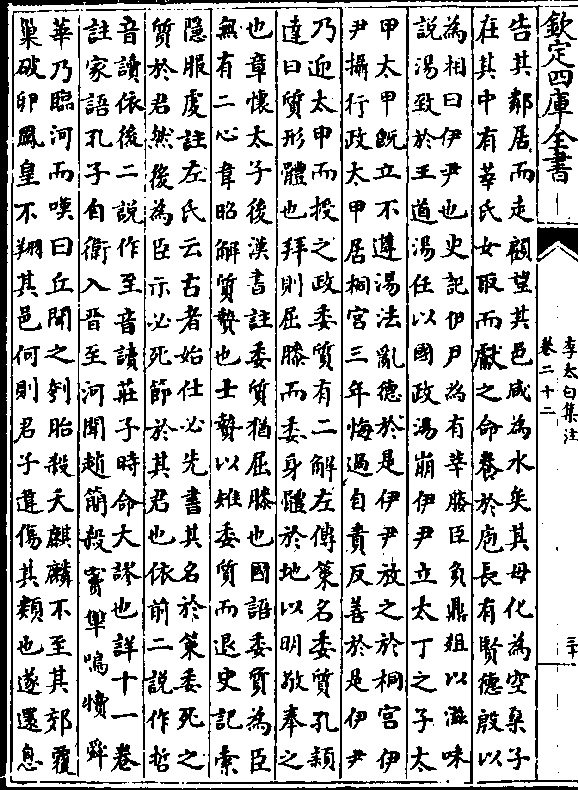 欽定四庫全書
李太白集注
卷二十二
三十
告其鄰居而走顧望其邑咸為水矣其母化為空桑子
在其中有莘氏女取而獻之命養於庖長有賢德殷以
為相曰伊尹也史記伊尹為有莘媵臣負鼎俎以滋味
說湯致於王道湯任以國政湯崩伊尹立太丁之子太
甲太甲既立不遵湯法亂德於是伊尹放之於桐宮伊
尹攝行政太甲居桐宮三年悔過自責反善於是伊尹
乃迎太甲而授之政委質有二解左傳策名委質孔穎
達曰質形體也拜則屈膝而委身體於地以明敬奉之
也章懷太子後漢書註委質猶屈膝也國語委質為臣
無有二心韋昭解質贄也士贄以雉委質而退史記索
隱服虔註左氏云古者始仕必先書其名於策委死之
質於君然後為臣示必死節於其君也依前二說作哲
音讀依後二說作至音讀莊子時命大謬也詳十一卷
註家語孔子自衛入晉至河聞趙簡殺竇犨鳴犢舜
華乃臨河而嘆曰丘聞之刳胎殺夭麒麟不至其郊覆
巢破卵鳳皇不翔其邑何則君子違傷其類也遂還息